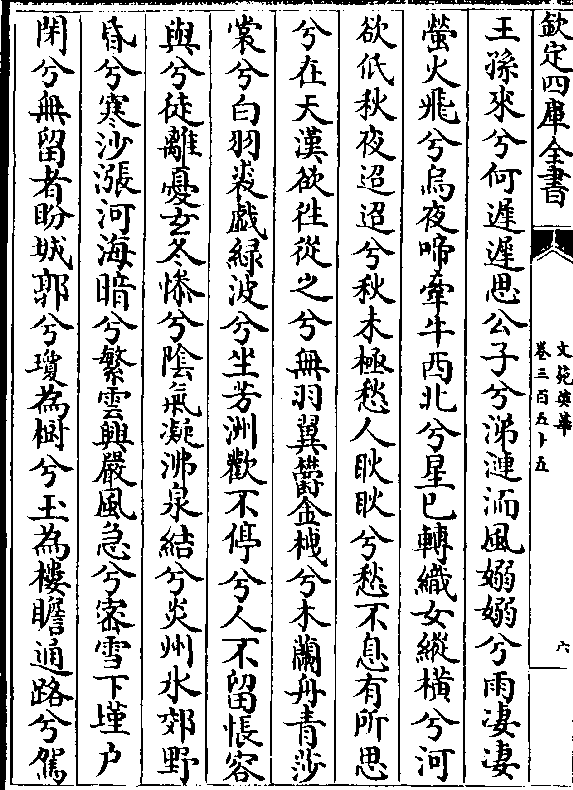 欽定四庫全書
文苑英華
卷三百五十五
六
王孫來兮何遲遲思公子兮涕漣洏風嫋嫋兮雨凄凄
螢火飛兮烏夜啼牽牛西北兮星已轉織女縱橫兮河
欲低秋夜迢迢兮秋未極愁人耿耿兮愁不息有所思
兮在天漢欲往從之兮無羽翼欝金栧兮木蘭舟青莎
裳兮白羽裘戱緑波兮坐芳洲歡不停兮人不留悵容
與兮徒離憂玄冬惨兮陰氣凝沸泉結兮炎州氷郊野
昏兮寒沙漲河海暗兮繁雲興嚴風急兮宻雪下墐户
閉兮無留者盼城郭兮瓊為樹兮玉為樓瞻通路兮駕